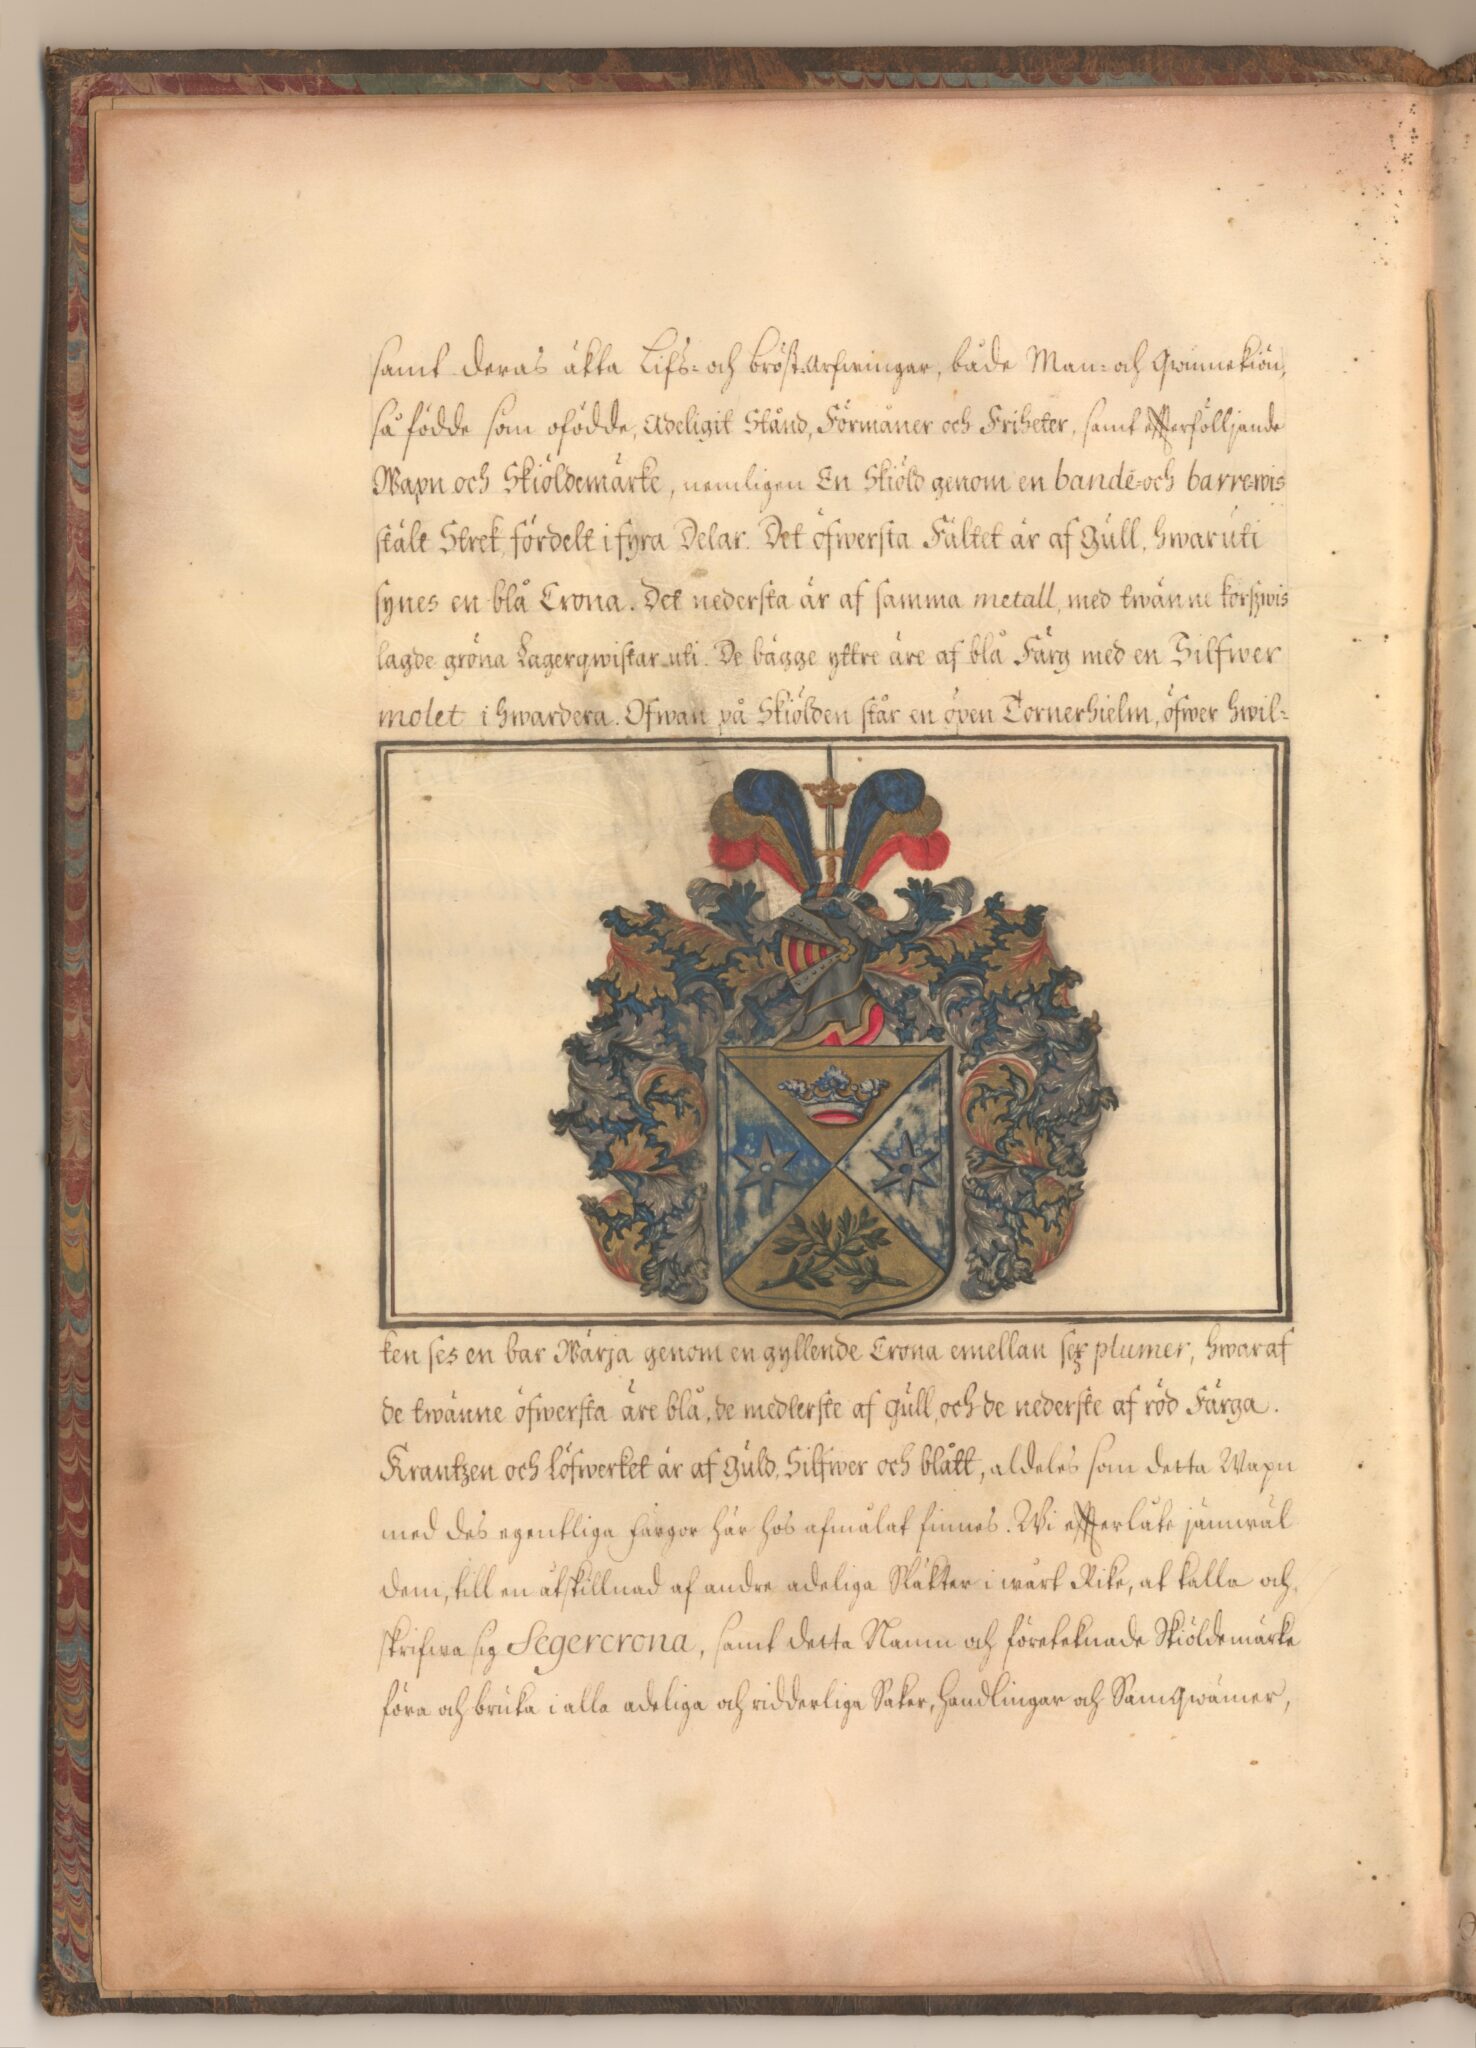 samt deras äkta Lifs- och bröst-Arfwingar, både Man- och Qwinnekiön,
så födde som ofödde, Adeligit Stånd, Förmåner och Friheter, samt efterföljande
Wapn och Skiöldemärke, nemligen En Skiöld genom en bande- och barrewis
stält Strek, fördelt i fyra Delar. Det öfwersta Fältet är af Gull, hwaruti
synes en blå Crona. Det nedersta är af samma metall, med twänne korszwis
lagde gröna Lagerqwistar uti. De bägge yttre äre af blå Färg med en Silfwer
molet i hwardera. Ofwan på Skiölden står en öpen Tornerhielm, öfwer hwil-
ken ses en bar Wärja genom en gyllende Crona emellan sex plumer, hwaraf
de twänne öfwersta äre blå, de medlerste af Gull, och de nederste af röd Färga.
Krantzen och Löfwerket är af Guld, Silfwer och blått, aldeles som detta Wapn
med des egentliga färgor här hos afmålat finnes. Wi efterlåte jämwäl
dem, till en åtskillnad af andre adeliga Släkter i wårt Rike, at kalla och
skrifwa sig Segercrona, samt detta Namn och företeknade Skiöldemärke
föra och bruka i alla adeliga och ridderliga Saker, Handlingar och Samqwämer,